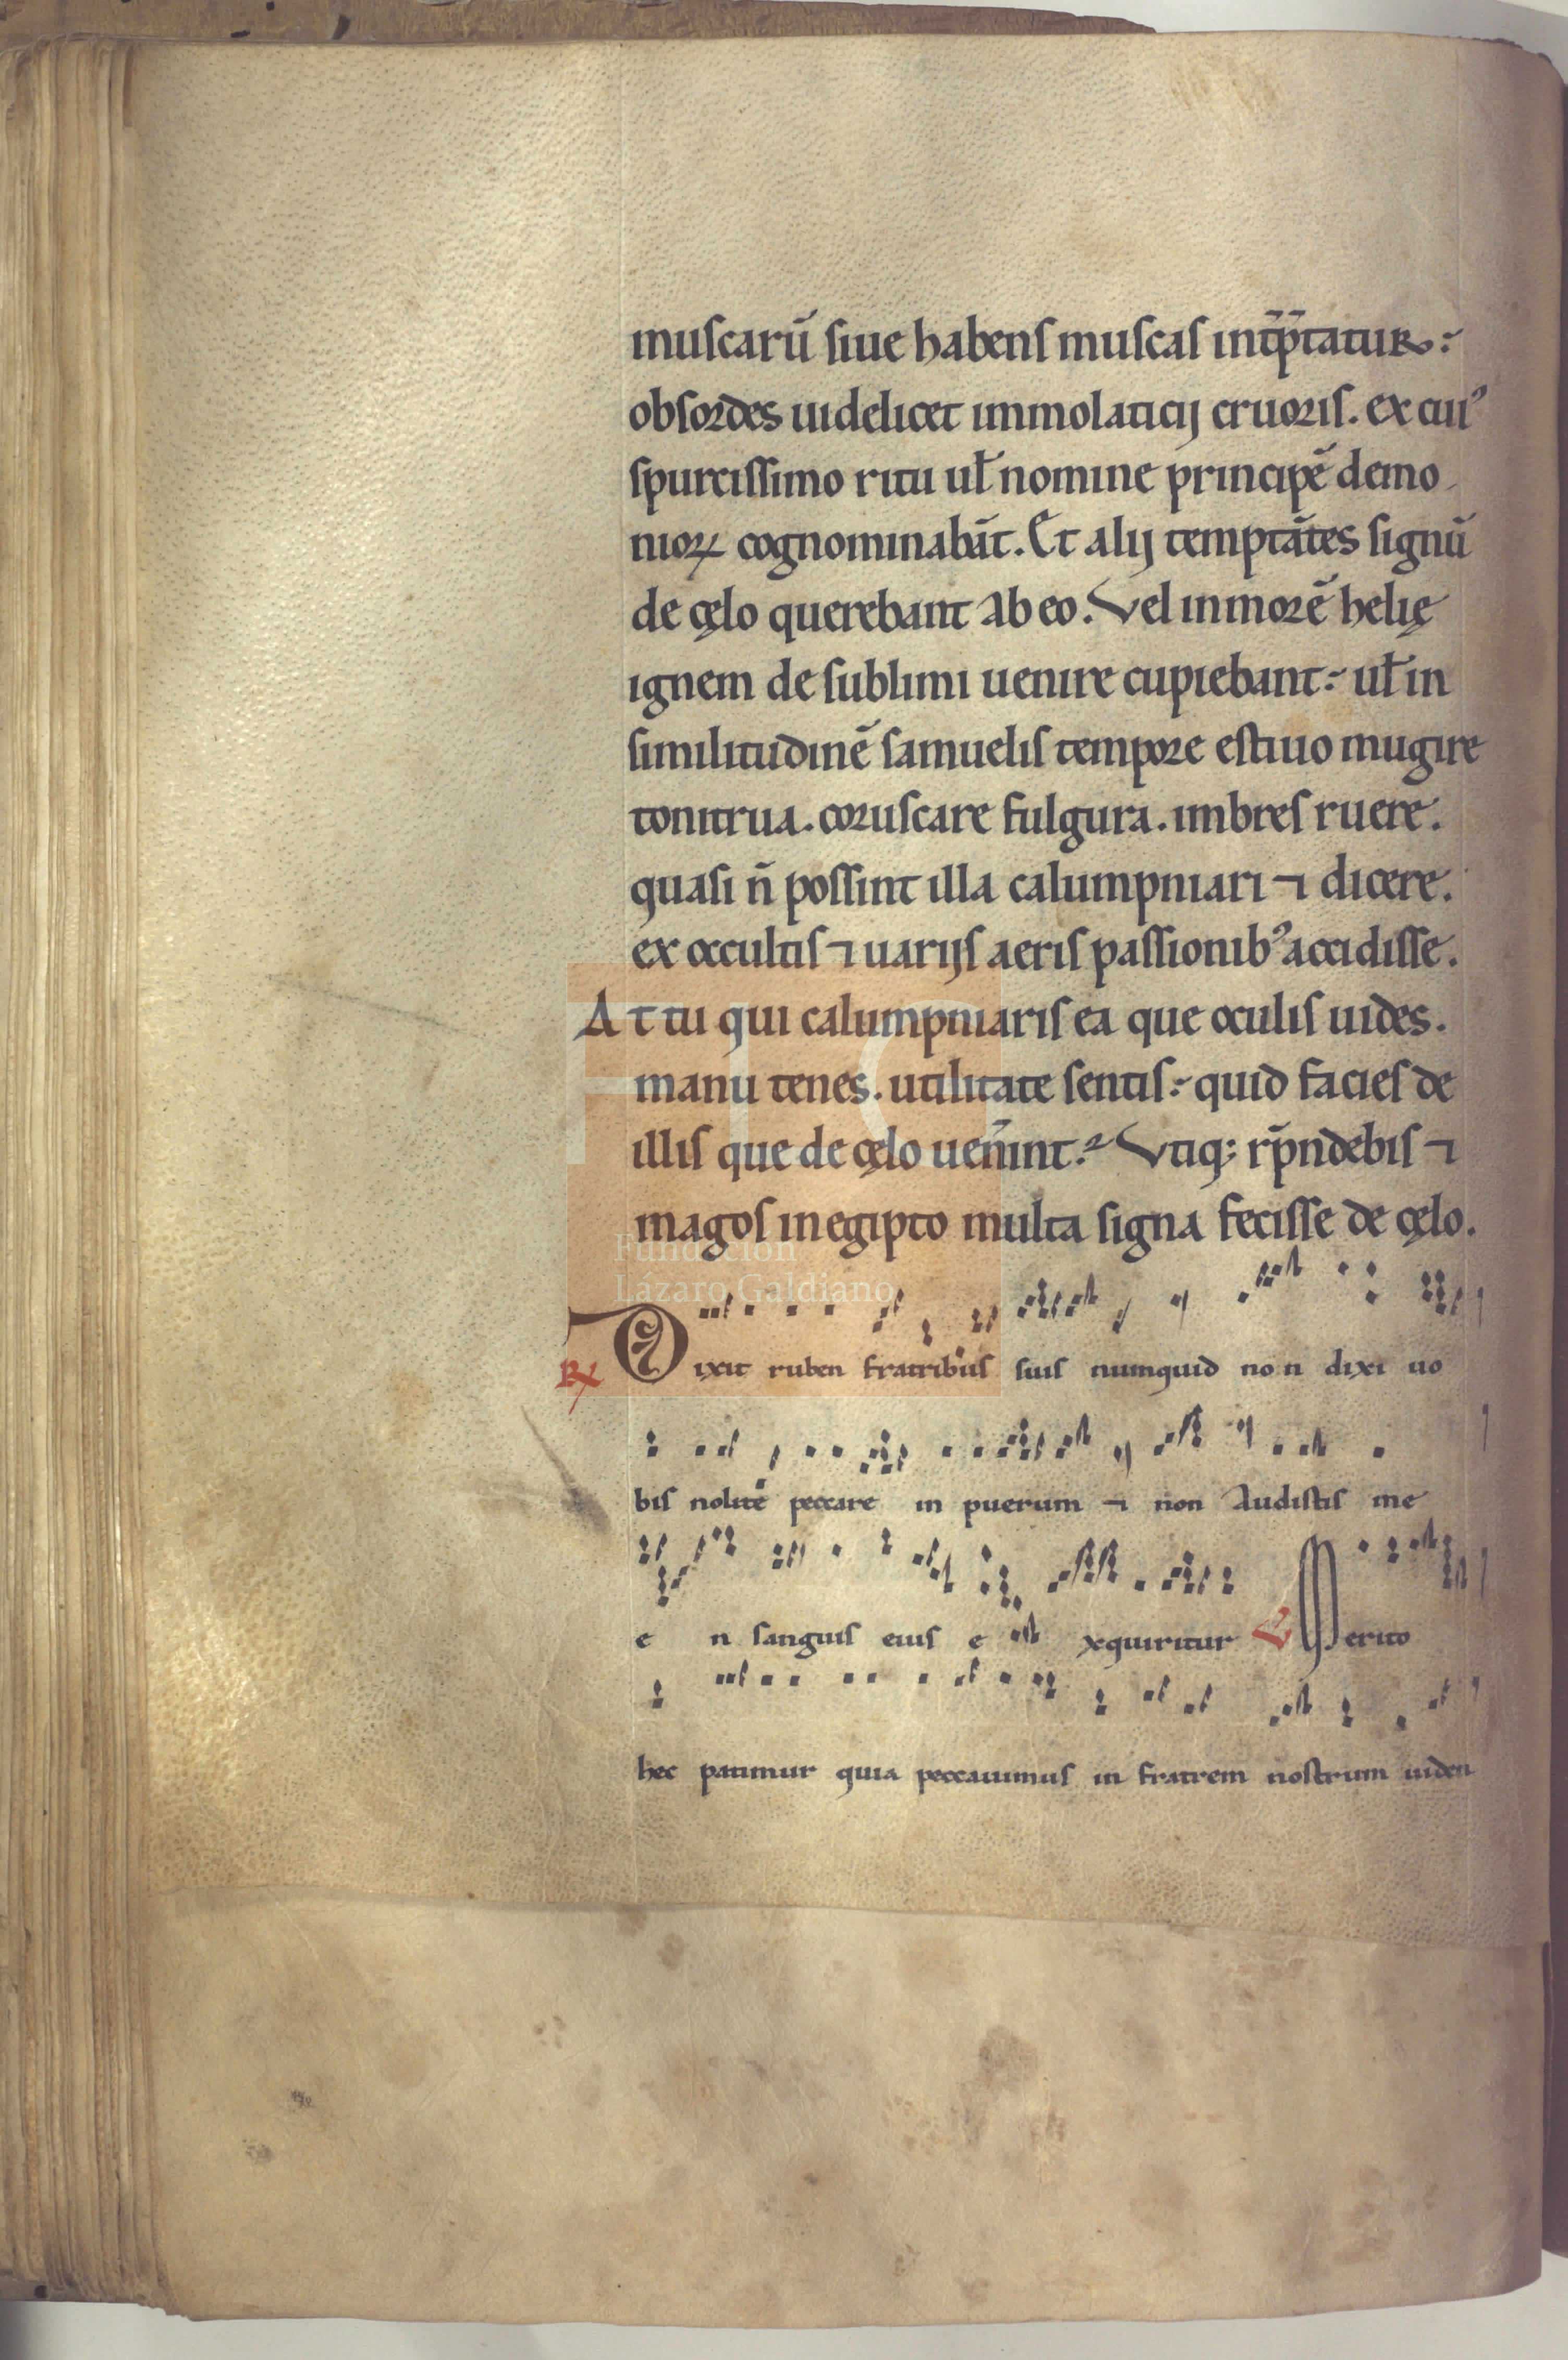 muscarū siue habens muscas int̄p̄tatur:
obsordes uidelicet immolaticij cruoris. ex cui⁹
spurcissimo ritu ul̄ nomine principē demo
nioꝝ cognominabāt. Et alij temptātes signū
de cęlo querebant ab eo. Vel inmorē helię
ignem de sublimi uenire cupiebant: ul̄ in
similitudinē samuelis tempore estiuo mugire
tonitrua. coruscare fulgura. imbres ruere.
quasi n̄ possint illa calumpniari ⁊ dicere.
ex occultis ⁊ uarijs aeris passionib⁹ accidisse.
At tu qui calumpniaris ea que oculis uides.
manu tenes. utilitate sentis: quid facies de
illis que de cęlo uen̄int? Vtiq; rp̄ndebis ⁊
magos inegipto multa signa fecisse de cęlo.
Fundación
Lázaro Galdiano
℟ Dixit ruben fratribus suis numquid non dixi uo
bis nolite peccare in puerum ⁊ non audistis me
e n sanguis eius e xquiritur ℣ Merito
hec patimur quia peccauimus in fratrem nostrum uiden